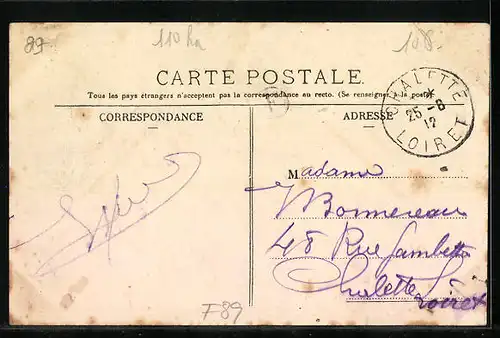 89
110 ha
108
CARTE POSTALE
Tous les pays étrangers n'acceptent pas la correspondance au recto. (Se renseigner à la poste)
CORRESPONDANCE
ADRESSE
CHALETTE
25-8
12
LOIRET
B
Madame
Bonnereau
48 Rue Gambetta
Chalette
Loiret
F89